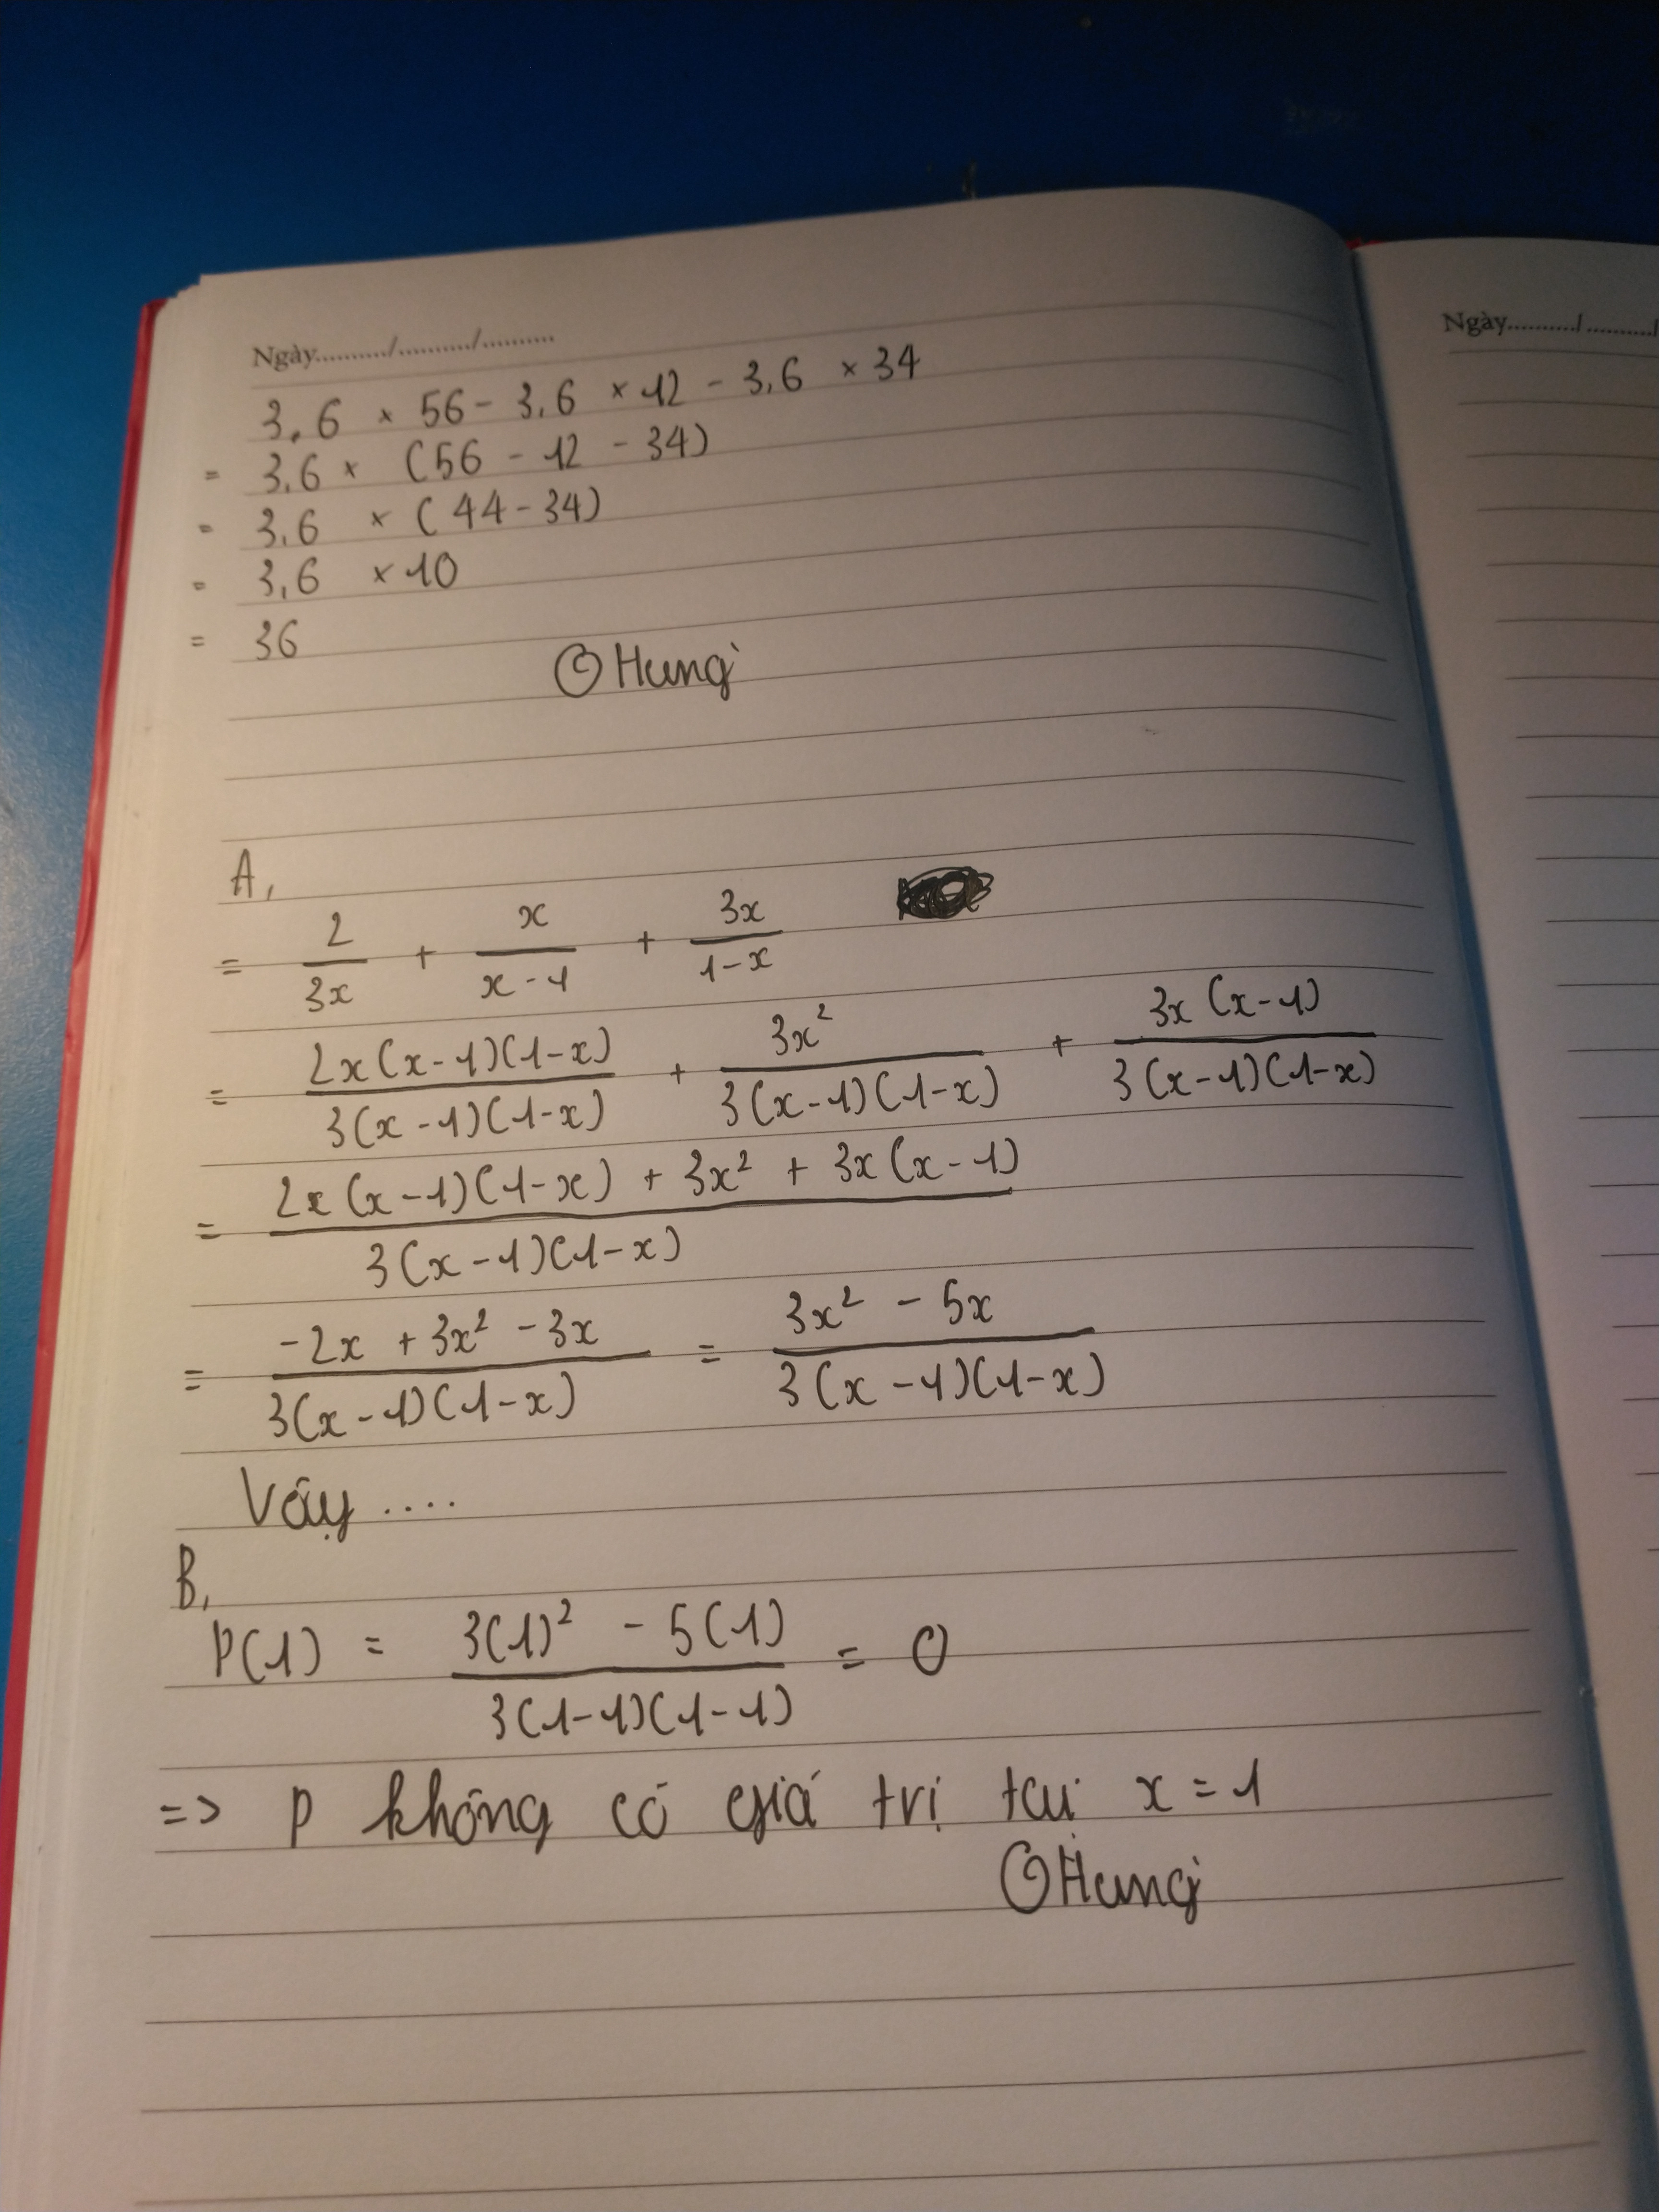 Ngày........../........../..........
Ngày........../........../
3,6 × 56 - 3,6 × 12 - 3,6 × 34
= 3,6 × (56 - 12 - 34)
= 3,6 × (44 - 34)
= 3,6 × 10
= 36
©Hưng
A,
= 2/3x + x/x-1 + 3x/1-x
= 2x(x-1)(1-x)/3(x-1)(1-x) + 3x²/3(x-1)(1-x) + 3x(x-1)/3(x-1)(1-x)
= 2x(x-1)(1-x) + 3x² + 3x(x-1)/3(x-1)(1-x)
= -2x + 3x² - 3x/3(x-1)(1-x) = 3x² - 5x/3(x-1)(1-x)
Vậy ....
B,
P(1) = 3(1)² - 5(1)/3(1-1)(1-1) = 0
=> P không có giá trị tại x = 1
©Hưng